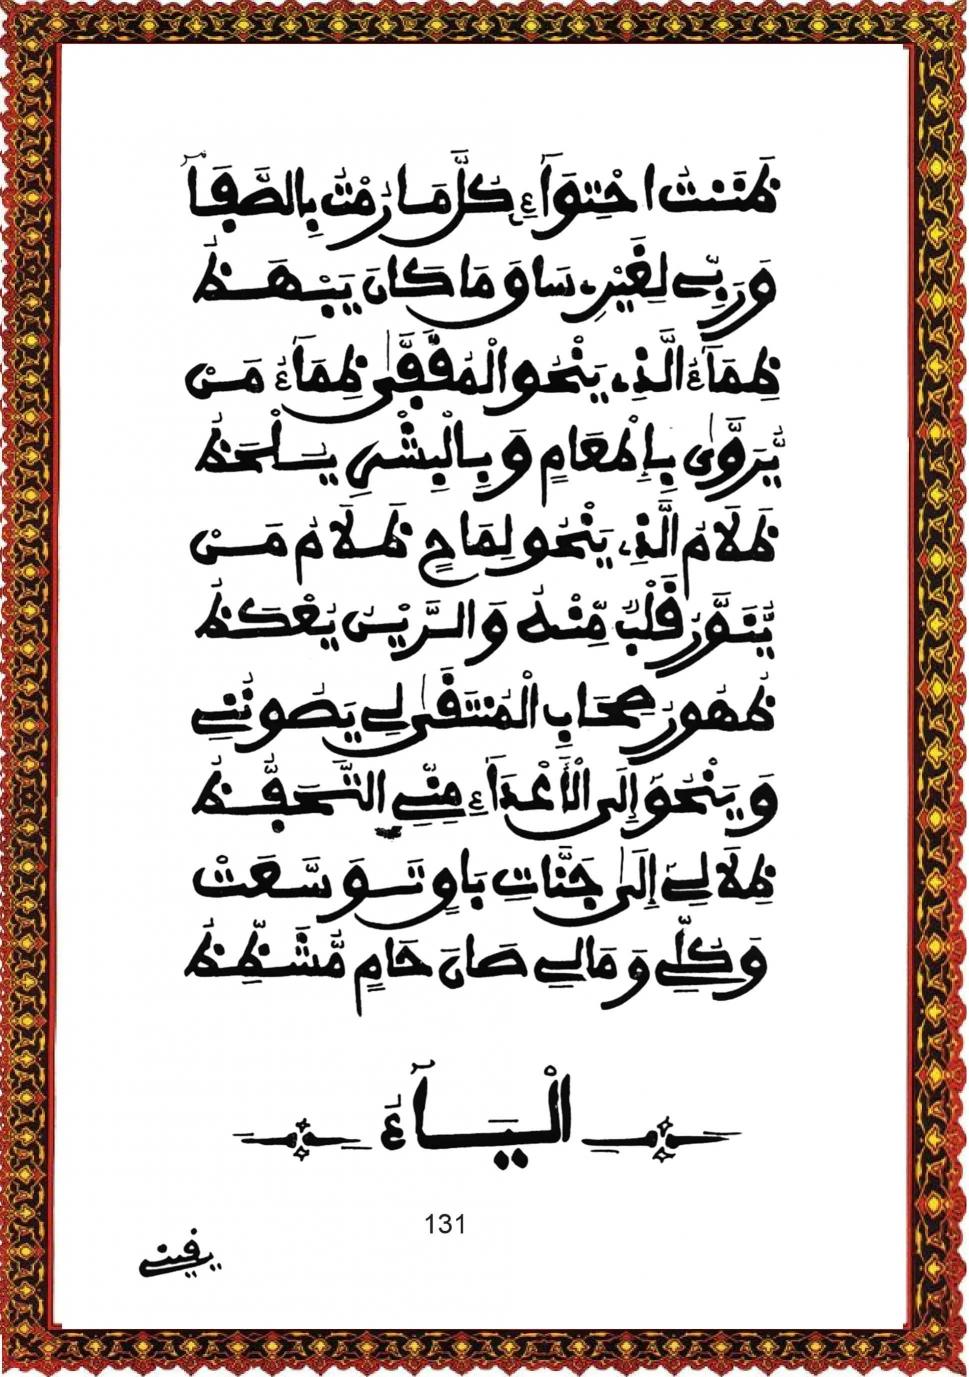 ظَنَنتُ احْتِوَآءِ كُلَّ مَا رُمْتُ بِالصَّفَآ
وَرَبِّے لِغَيْرِے سَاوَ مَا كَانَ يَبْهَظُ
ظِمَآءُ الَّذِے يَنْحُو الْمُقَفَّىٰ ظِمَآءُ مَنْ
يُّرَوَّىٰ بِإِطْعَامٍ وَبِالْبِشْرِ يُلْحَظُ
ظَلَامُ الَّذِے يَنْحُو لِمَاحٍ ظَلَامُ مَنْ
يُّنَوَّرُ قَلْبٌ مِّنْهُ وَالرَّيْنُ يُعْكَظُ
ظُهُورُ صِحَابِ الْمُنتَقَىٰ لِے يَصُونُنِے
وَيَنْحُو إِلَى الْأَعْدَآءِ مِنِّے التَّحَفُّظُ
ظِلَالِےَ إِلَىٰ جَنَّاتِ بَاقٍ تَوَسَّعَتْ
وَكُلِّے وَمَالِے صَانَ حَامٍ مُّشَظِّظُ
الْيَآءُ
131
يفيني